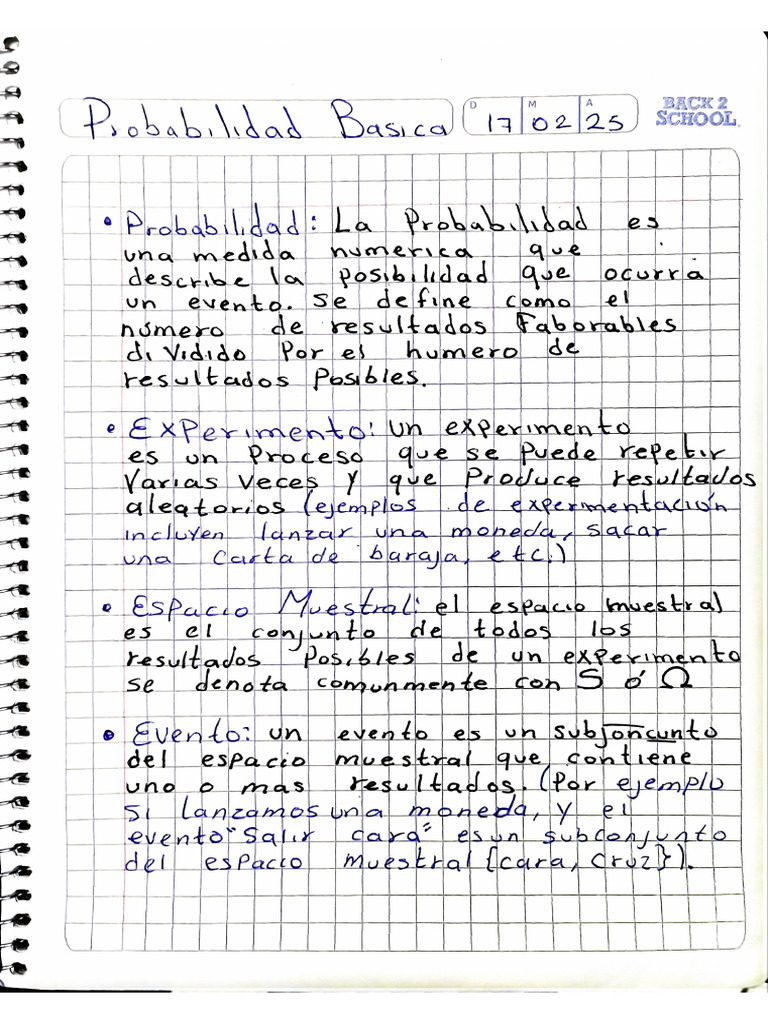 Probabilidad Basica
D 17 M 02 A 25
BACK 2
SCHOOL
• Probabilidad: La Probabilidad es
una medida numerica que
describe la posibilidad que ocurra
un evento. se define como el
número de resultados Faborables
dividido Por el humero de
resultados Posibles.
• Experimento: un experimento
es un Proceso que se Puede repetir
Varias veces y que Produce resultados
aleatorios (ejemplos de expermentación
incluyen lanzar una moneda, sacar
una carta de baraja, etc.)
• Espacio Muestral: el espacio muestral
es el conjunto de todos los
resultados Posibles de un experimento
se denota comunmente con S ó Ω
• Evento: un evento es un subjoncunto
del espacio muestral que contiene
uno o mas resultados. (Por ejemplo
si lanzamos una moneda, y el
evento "Salir cara" es un subconjunto
del espacio muestral {cara, cruz}).